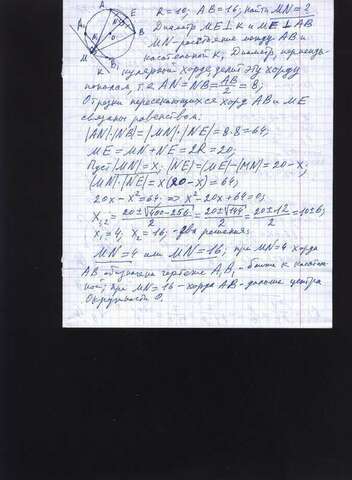 R = 10, AB = 16, найти MN = ?
Диаметр ME ⊥ K и ME ⊥ AB
MN - расстояние между AB и
касательной K, Диаметр, перпенди-
кулярный хорде, делит эту хорду
пополам, т.е. AN = NB = AB/2 = 8;
Отрезки пересекающихся хорд AB и ME
связаны равенством:
|AN|·|NB| = |MN|·|NE| = 8·8 = 64;
ME = MN + NE = 2R = 20;
Пусть |MN| = x; |NE| = |ME| - |MN| = 20 - x;
|MN|·|NE| = x(20 - x) = 64;
20x - x² = 64; ⇒ x² - 20x + 64 = 0;
x₁,₂ = (20 ± √(400 - 256))/2 = (20 ± √144)/2 = (20 ± 12)/2 = 10 ± 6;
x₁ = 4; x₂ = 16; - два решения:
MN = 4 или MN = 16; при MN = 4 хорда
AB, на чертеже A₁B₁ - ближе к касатель
ной; при MN = 16 - хорда AB - дальше центра
окружности O.
A
E
B
A₁
N
O
N₁
M
B₁
K